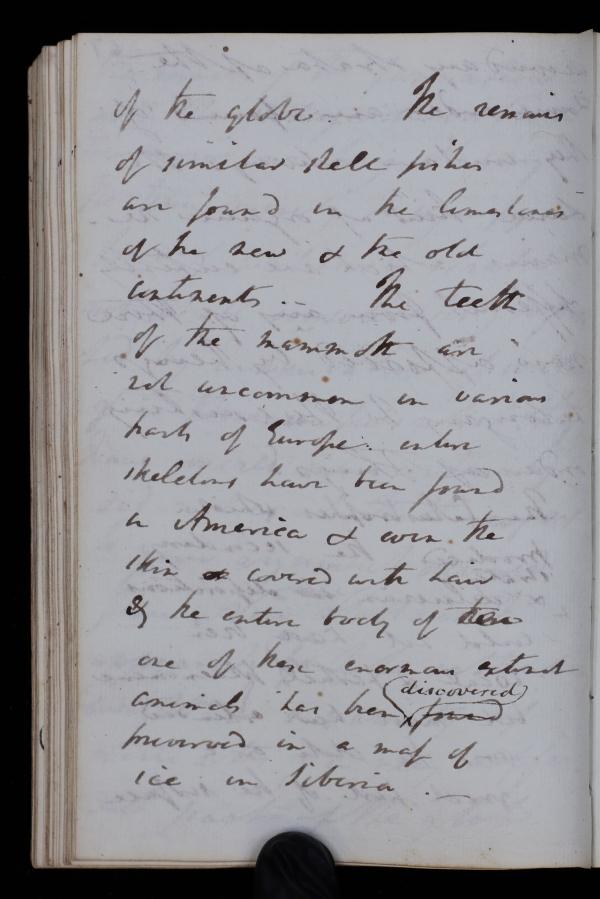 of the globe. The remains
of similar shell fishes
are found in the limestones
of the new & the old
continents. – The teeth
of the mammoth are
not uncommon in various
parts of Europe: entire
skeletons have been found
in America & even the
skin covered with hair
& the entire body of
one of these enormous extinct
discovered
animals has been found
preserved in a mass of
ice in Siberia. –